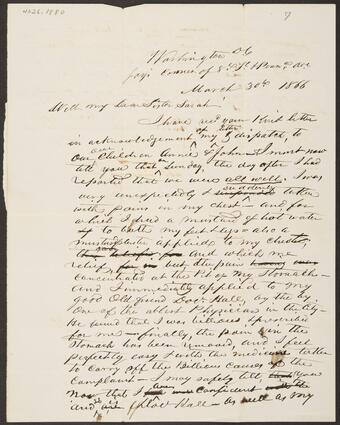 4026.1880
7
Washington DC
March 30th 1866
Well my Dear Sister Sarah!
I have recd your kind letter
in acknowledgement of my letter & dispatch, to
our dear Children Annie & John & I must now
tell you that Sunday, the day after I had
reported that we were all well. I was
very unexpectedly suddenly taken
with pain in my chest – and for
which I used a mustard & hot water
to bathe my feet & legs – also a
mustard plaster applied to my Chest,
and which me
relief but the pain
concentrated at the Pit of my Stomach –
and I immediately applied to my
good Old friend Docr. Hall, by the by.
One of the ablest Physicians in the City –
He said that I was bilious & prescribed
for me – finally, the pain in the
Stomach has been removed, and I feel
perfectly easy & with the medicine
to carry off the Bilious cause of the
Complaint – I may safely tell you
now that I am confident
and so is Doctr Hall – as well as my